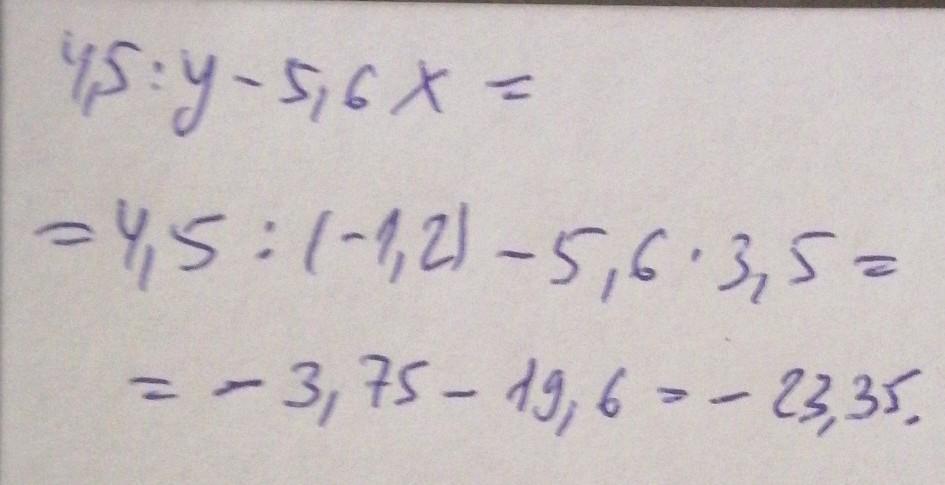 4,5 : y - 5,6 x =
= 4,5 : (-1,2) - 5,6 · 3,5 =
= - 3,75 - 19,6 = - 23,35.